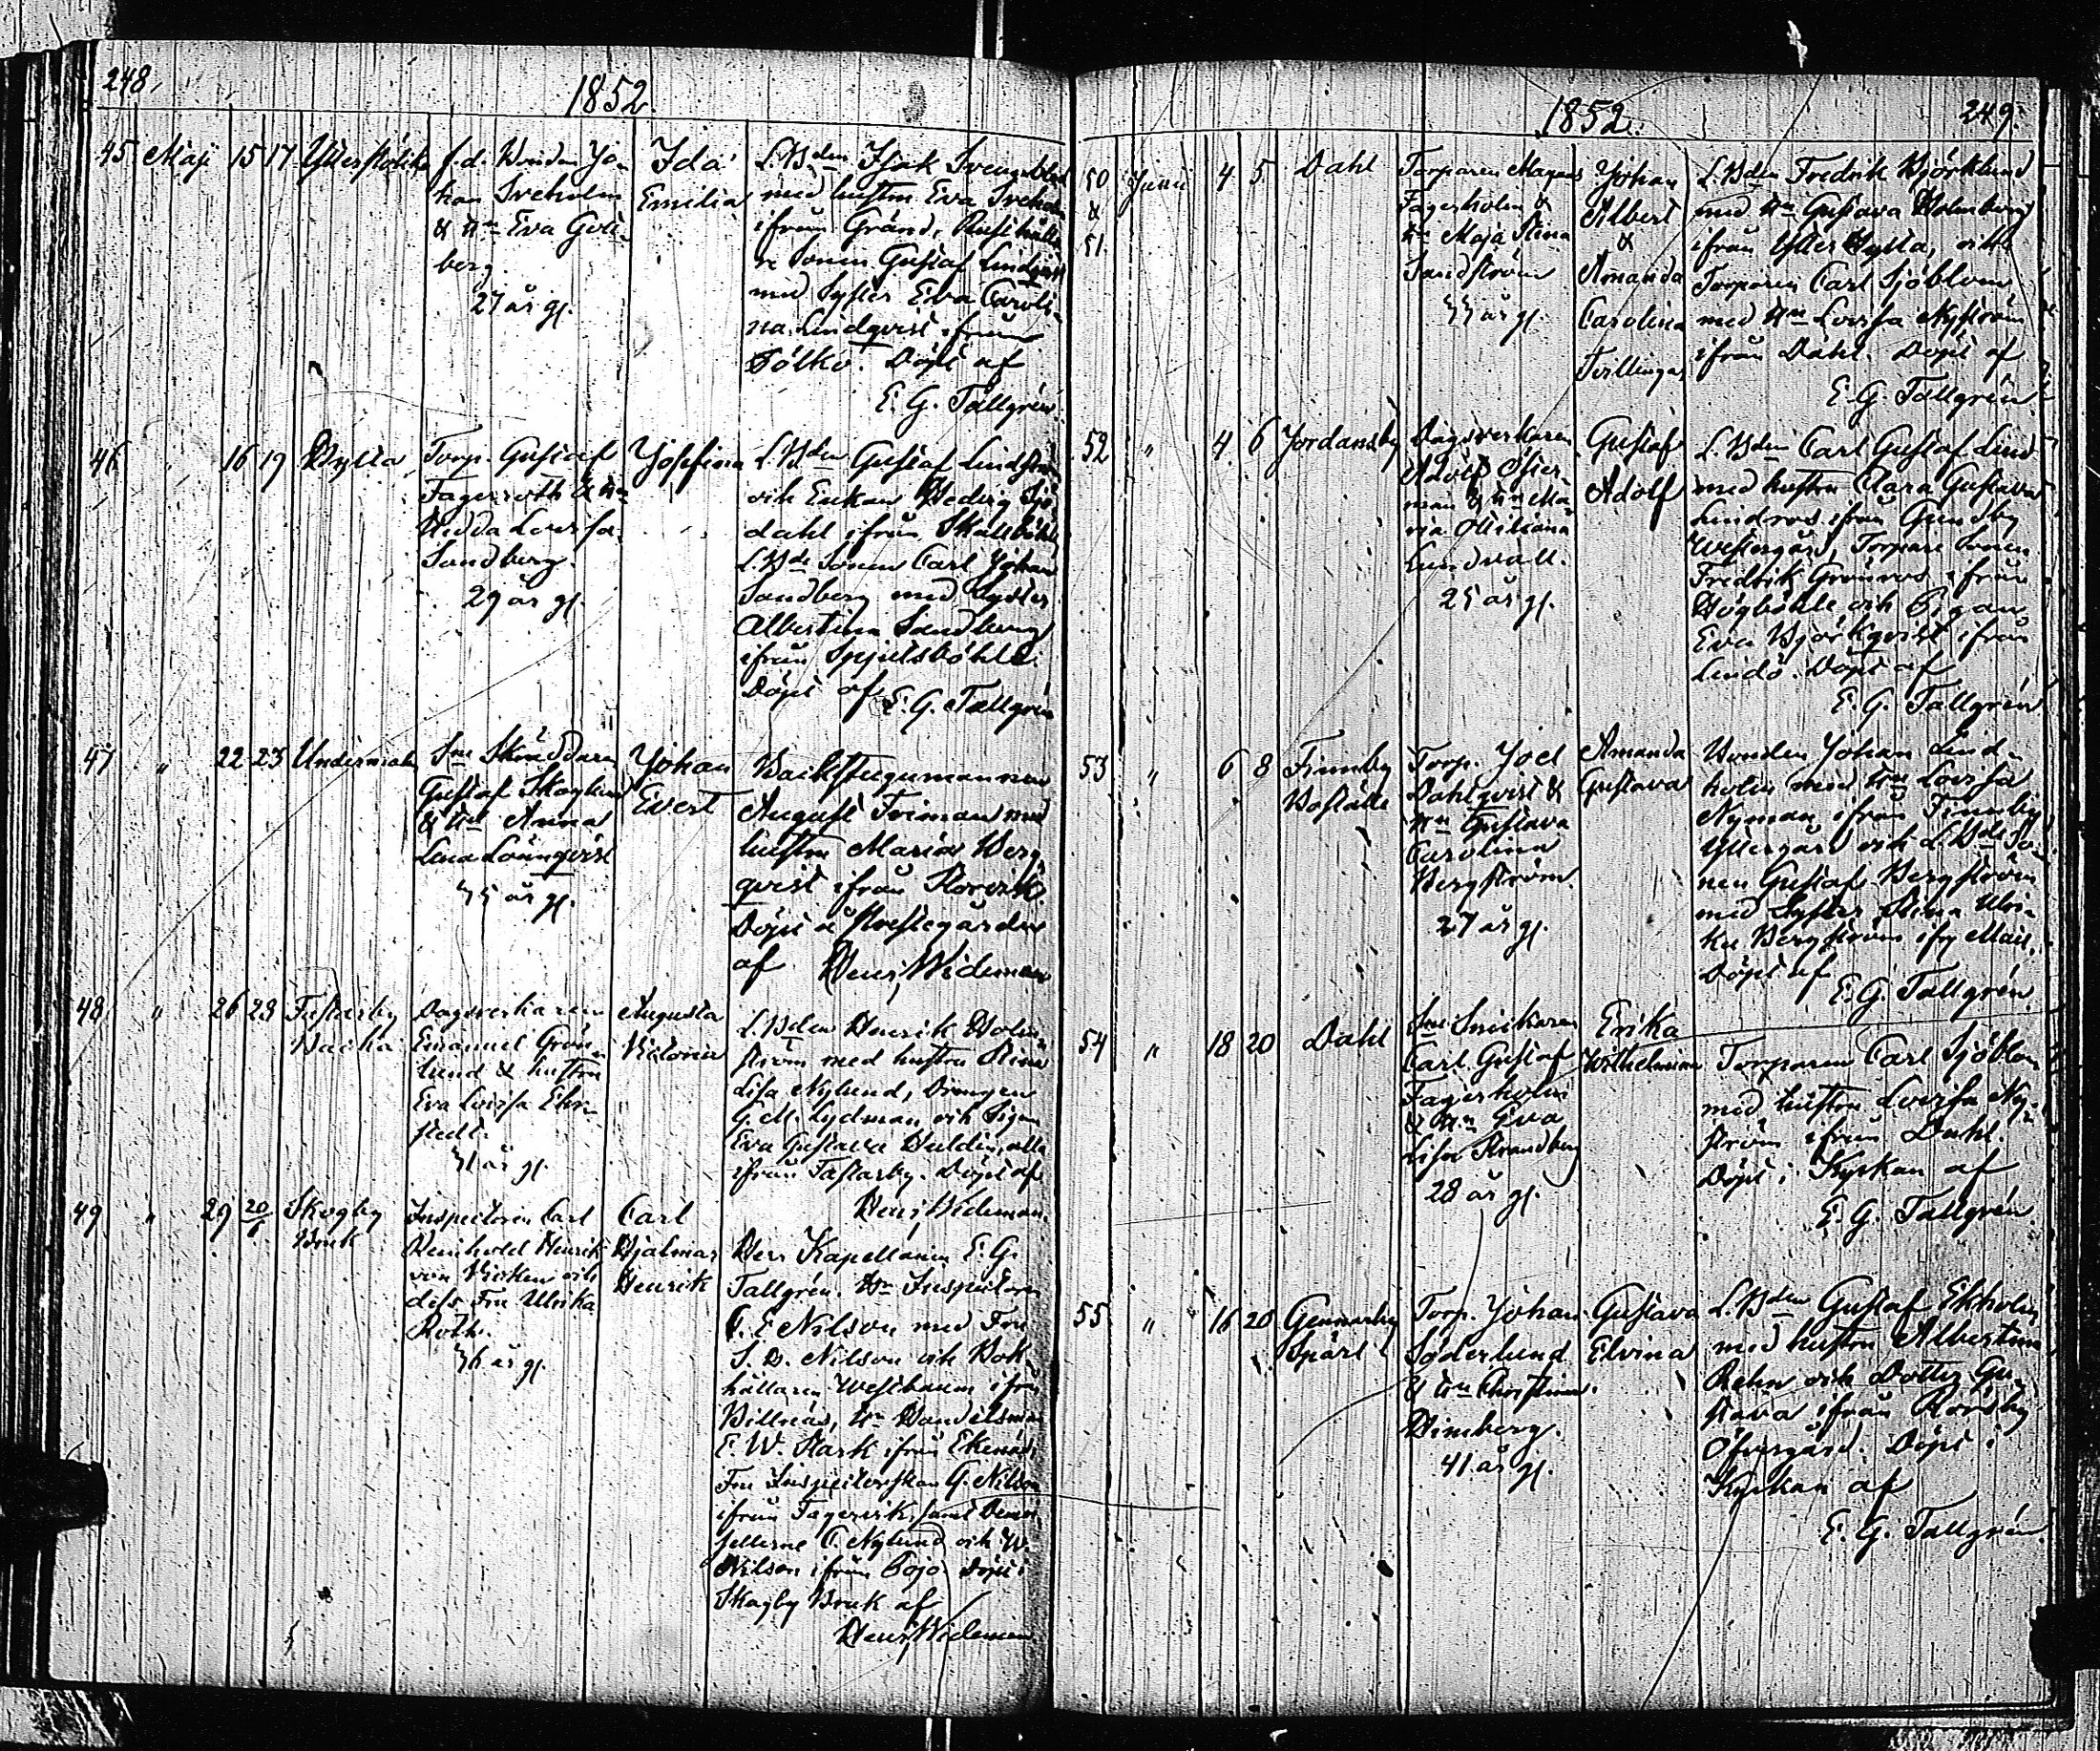 248.
1852.
45 Maji 15 17
f.d. Bonden Jo-
han Sveholm
& Hn Eva Grön-
berg.
27 år g.
Ida
Emilia
L.Bden Isak
med hustru Eva
ifrån Gränd,
Sonen Gustaf Lindqvist
med Syster Eva Caroli-
na Lindqvist ifrån
Döpt af
E. G. Tallgrén.
46 " 16 19
Torp. Gustaf
Fagerroth & Hn
Hedda Lovisa
Sandberg.
29 år g.
Josefina
L.Bden Gustaf
och Enkan Hedvig
dahl ifrån
L.Bde Sonen Carl Johan
Sandberg med Syster
Albertina Sandberg
ifrån
Döpt af E. G. Tallgrén
47 " 22 23
Sn Skräddaren
Gustaf Skoglund
& Hn Anna
Lena Lönnqvist
35 år g.
Johan
Evert
Backstugumannen
August Friman med
hustru Maria Berg-
qvist ifrån
Döpt å Prestegården
af Henr. Wideman
48 " 26 28 Fastarby
Backa
Dagsverkaren
Emanuel Grön-
lund & hustru
Eva Lovisa Ehr-
stedt.
31 år g.
Augusta
Victoria
L.Bden Henrik Holm-
ström med hustru Stina
Lisa Nylund, Drengen
G. M. Lydman och Pigan
Eva Gustava Huldin, alla
ifrån Fastarby. Döpt af
Henr. Wideman.
49 " 29 20/6 Skogby
Bruk
Inspectoren Carl
Reinhold Henrik
von Vicken och
dess Fru Ulrika
Roth.
36 år g.
Carl
Hjalmar
Henrik
Herr Kapellanen E. G.
Tallgrén. Hn Inspectoren
C. E. Nilson med Fru
S. D. Nilson och Bok-
hållaren Westbaum ifrån
Billnäs, Hn Handelsman
E. W. Stark ifrån Ekenäs,
Fru Inspectorskan G. Nilson
ifrån Fagervik, samt Dem-
sellerne C. Nylund och W.
Nilson ifrån Pojo. Döpt i
Skogby Bruk af
Henr. Wideman
1852.
249.
50
&
51.
Junii 4 5 Dahl
Torparen Magnus
Fagerholm &
Hn Maja Stina
Sandström
33 år g.
Johan
Albert
&
Amanda
Carolina
Tvillingar
L.Bden Fredrik Björklund
med Hn Gustava Holmberg
ifrån Ytter Bylla, och
Torparen Carl Sjöblom
med Hn Lovisa Nyström
ifrån Dahl. Döpt af
E. G. Tallgrén
52 " 4 6 Jordansby
Dagsverkaren
Adolf Öster-
man & Hn Ma-
ria Christina
Lundvall.
25 år g.
Gustaf
Adolf
L.Bden Carl Gustaf Lind
med hustru Clara Gustava
Lindros ifrån Gundby
Westergård, Torpare Sonen
Fredrik Grönros ifrån
Högböhle och Pigan
Eva Björkqvist ifrån
Lindö. Döpt af
E. G. Tallgrén
53 " 6 8 Finnby
Torp. Joel
Dahlqvist &
Hn Gustava
Carolina
Bergström.
27 år g.
Amanda
Gustava
Bonden Johan Lind-
holm med Hn Lovisa
Nyman ifrån Finnby
Yttergård och L.Bde So-
nen Gustaf Bergström
med Syster Stina Ulri-
ka Bergström
Döpt af
E. G. Tallgrén
54 " 18 20 Dahl
Sn Snickaren
Carl Gustaf
Fagerholm
& Hn Eva
Lisa Strandberg
28 år g.
Erika
Wilhelmina
Torparen Carl Sjöblom
med hustru Lovisa Ny-
ström ifrån Dahl.
Döpt i Kyrkan af
E. G. Tallgrén
55 " 16 20 Gennarby
Torp. Johan
Söderlund
& Hn Christina
Himberg.
41 år g.
Gustava
Elvina
L.Bden Gustaf Ekholm
med hustru Albertina
Rehn och Dotter Gu-
stava ifrån
Öfvergård. Döpt i
Kyrkan af
E. G. Tallgrén